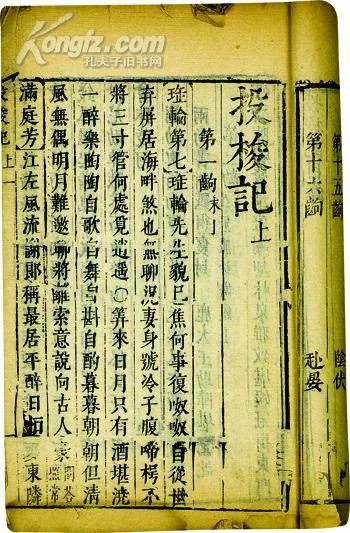 Kongfz.com
孔夫子旧书网
第十五齣 陰伏
第十六齣 赴晏
投梭記上
第一齣 末上
瑤輪第七瑤輪先生貌已焦何事復呶呶自從世
棄屏居海畔煞也無聊況妻身號冷子腹啼枵不
將三寸管何處覓逍遥○筭來日月只有酒堪澆
一醉樂陶陶自歌自舞自斟自酌暮暮朝朝但清
風無偶明月難邀聊將離索意說向古人豪 問荅照常
滿庭芳江左風流謝郎稱最居平醉日東隣
投梭記上 一